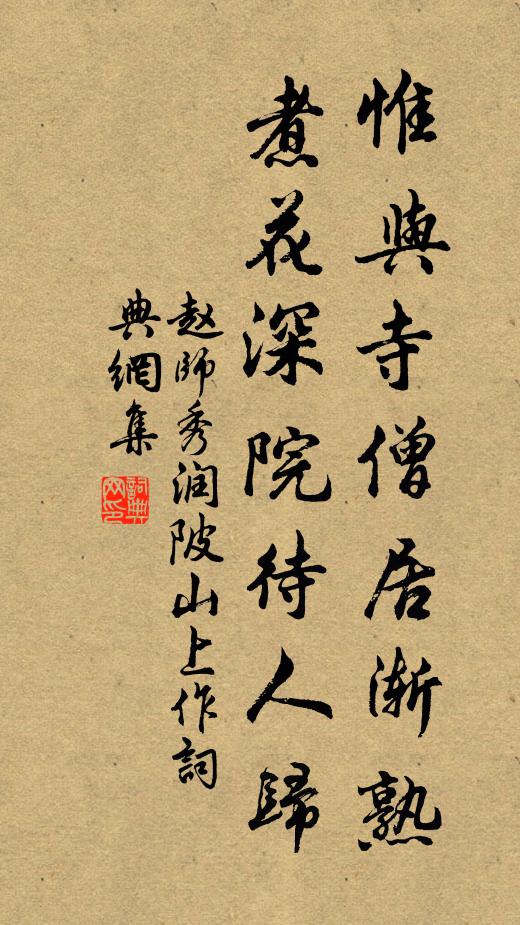 惟與寺僧居漸熟
煮花深院待人歸
赵師秀润陂山上作詞
典網集
詞典网印